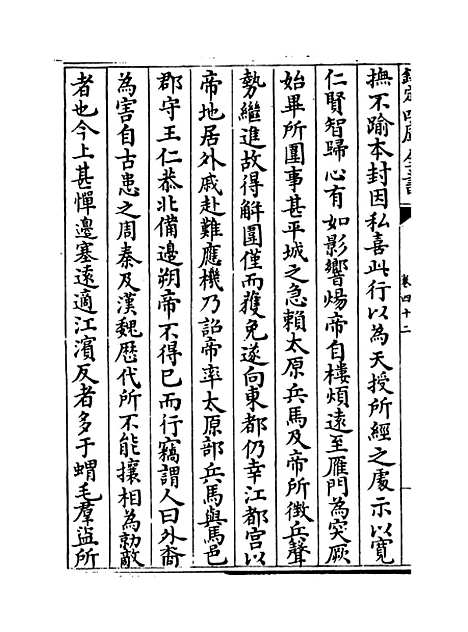 欽定四庫全書
卷四十二
撫不踰本封因私喜此行以為天授所經之處示以寬
仁賢智歸心有如影響煬帝自樓煩遠至雁門為突厥
始畢所圍事甚平城之急賴太原兵馬及帝所徵兵聲
勢繼進故得解圍僅而獲免遂向東都仍幸江都宮以
帝地居外戚赴難應機乃詔帝率太原部兵馬與馬邑
郡守王仁恭北備邊朔帝不得已而行竊謂人曰外裔
為害自古患之周秦及漢魏歴代所不能攘相為勍敵
者也今上甚憚邊塞遠適江濱反者多于蝟毛羣盜所